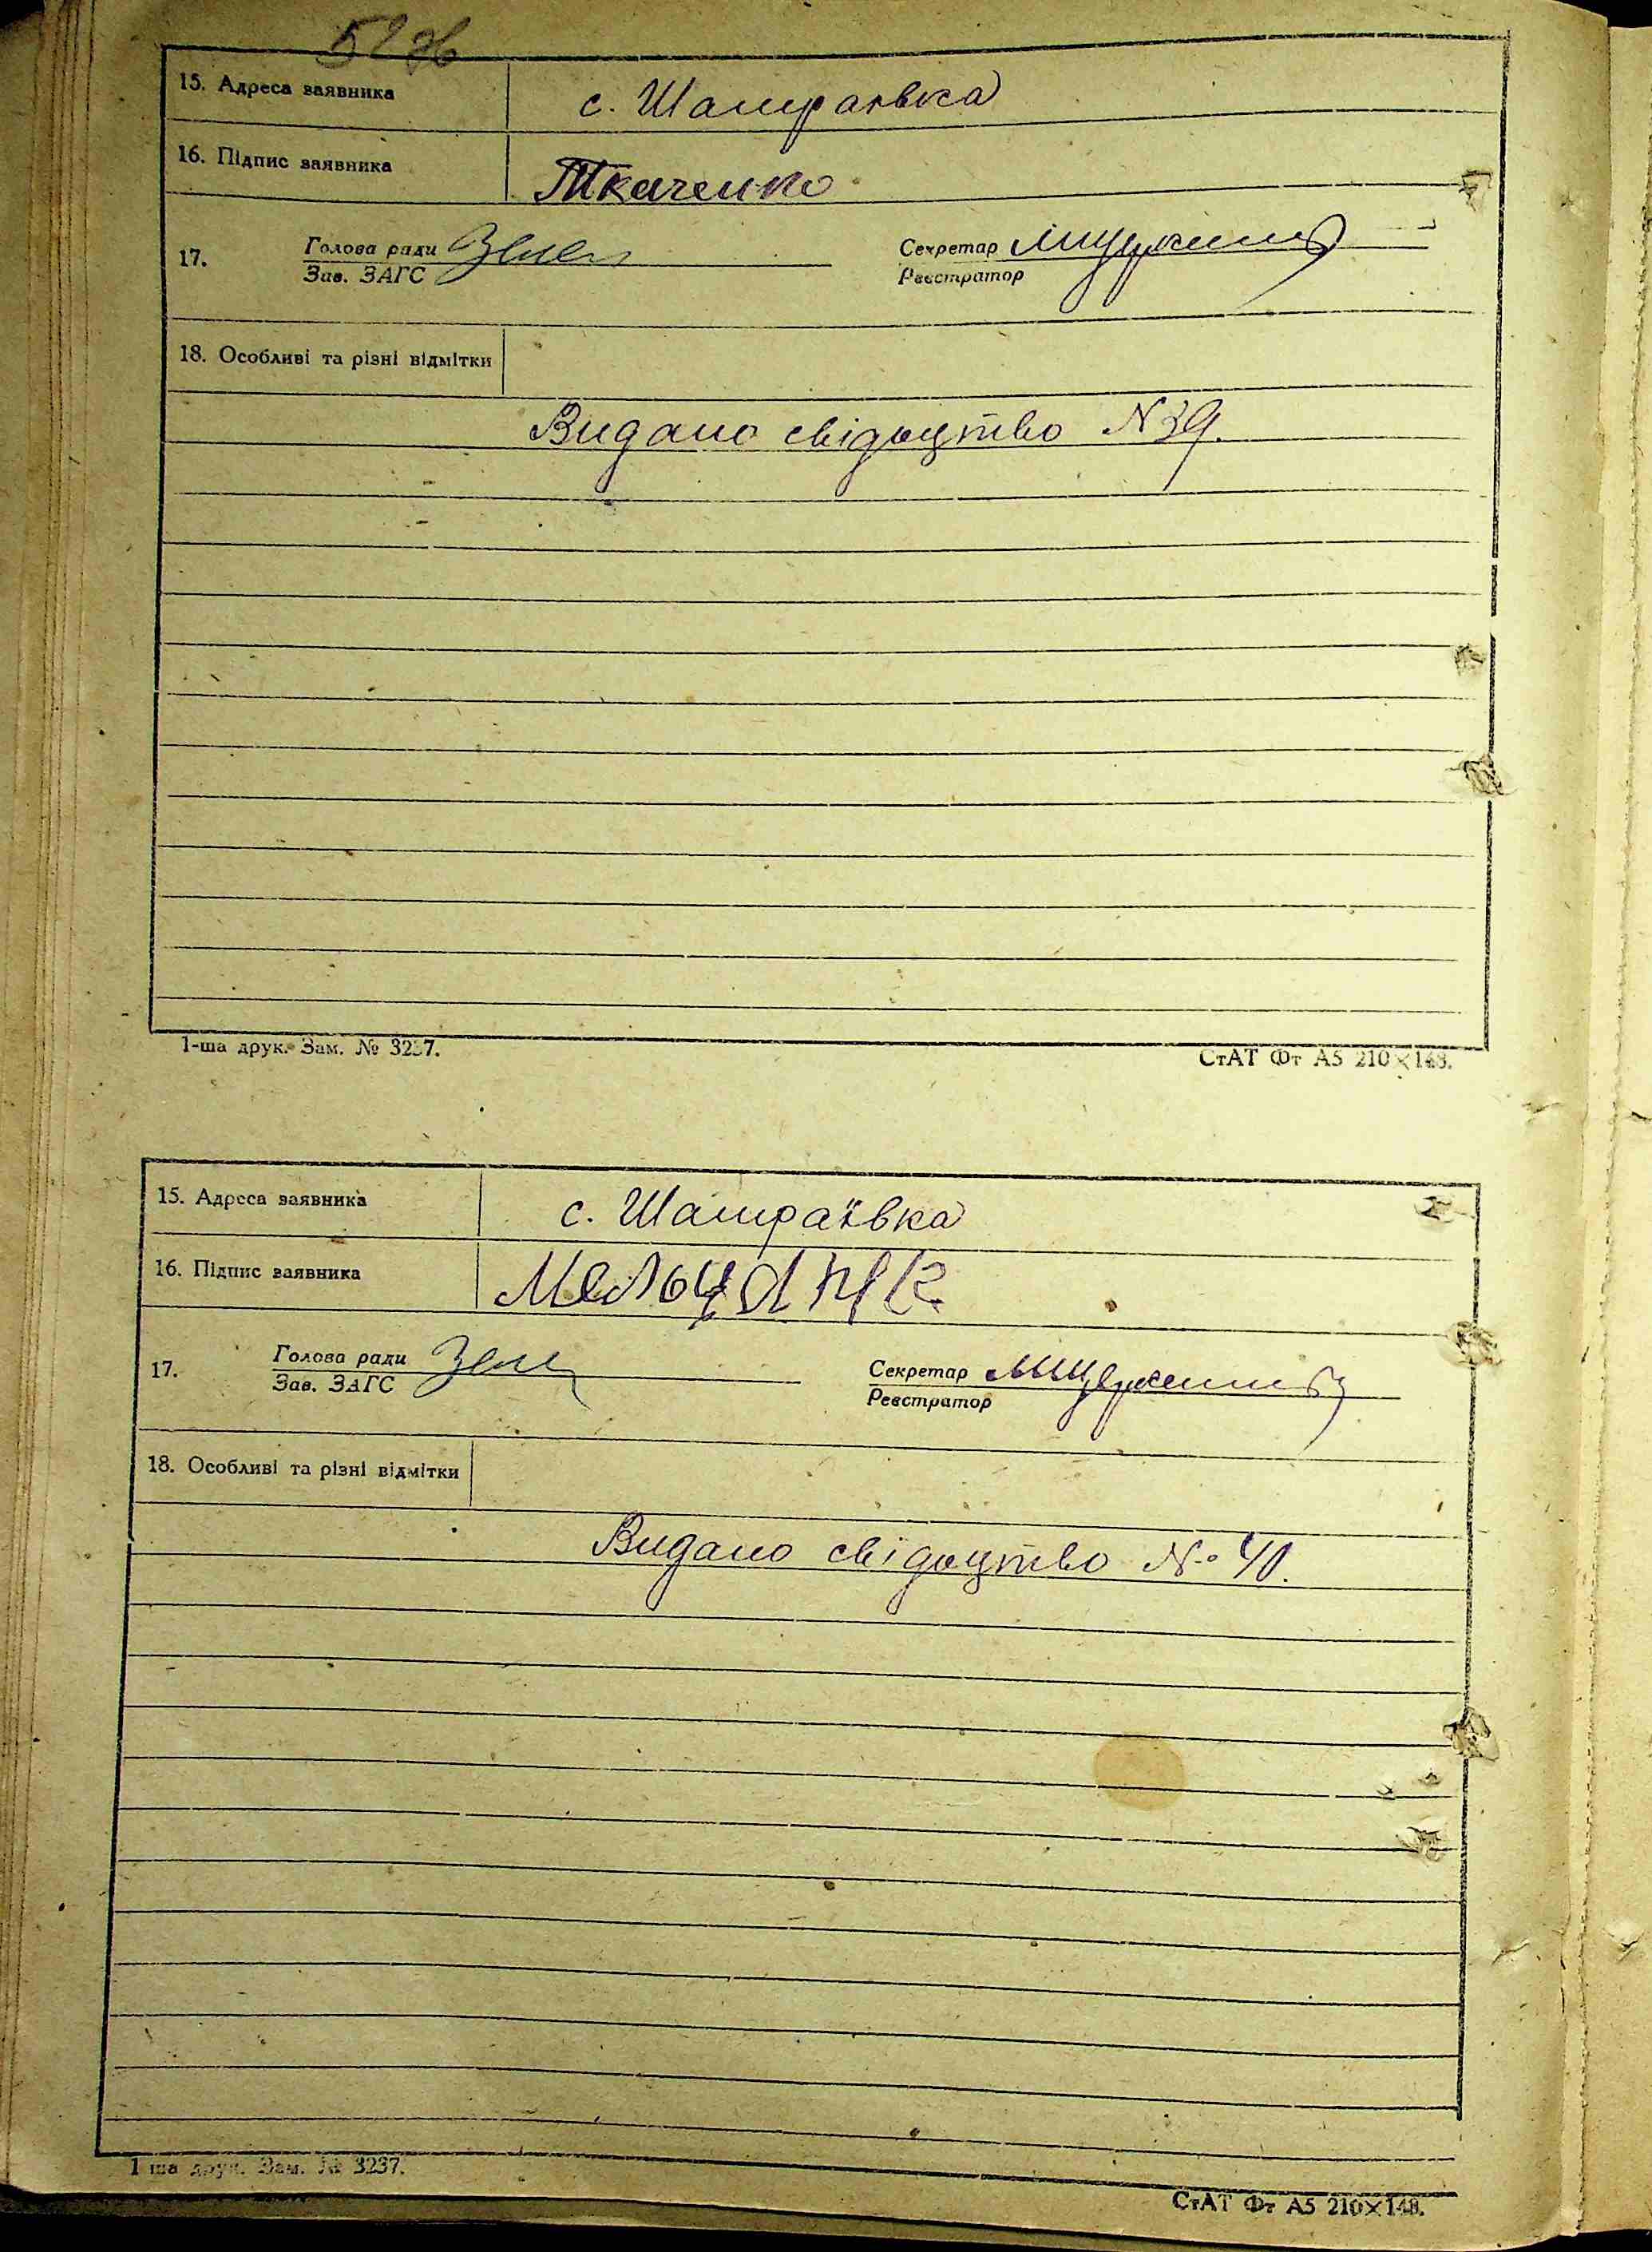 15. Адреса заявника с. Шамраївка
16. Підпис заявника Ткаченко
17. Голова ради Секретар
Зав. ЗАГС Реєстратор
18. Особливі та різні відмітки
Видано свідоцтво № 39.
1-ша друк. Зам. № 3237.
СтАТ Фт А5 210×148.
15. Адреса заявника с. Шамраївка
16. Підпис заявника
17. Голова ради Секретар
Зав. ЗАГС Реєстратор
18. Особливі та різні відмітки
Видано свідоцтво № 40.
1-ша друк. Зам. № 3237.
СтАТ Фт А5 210×148.